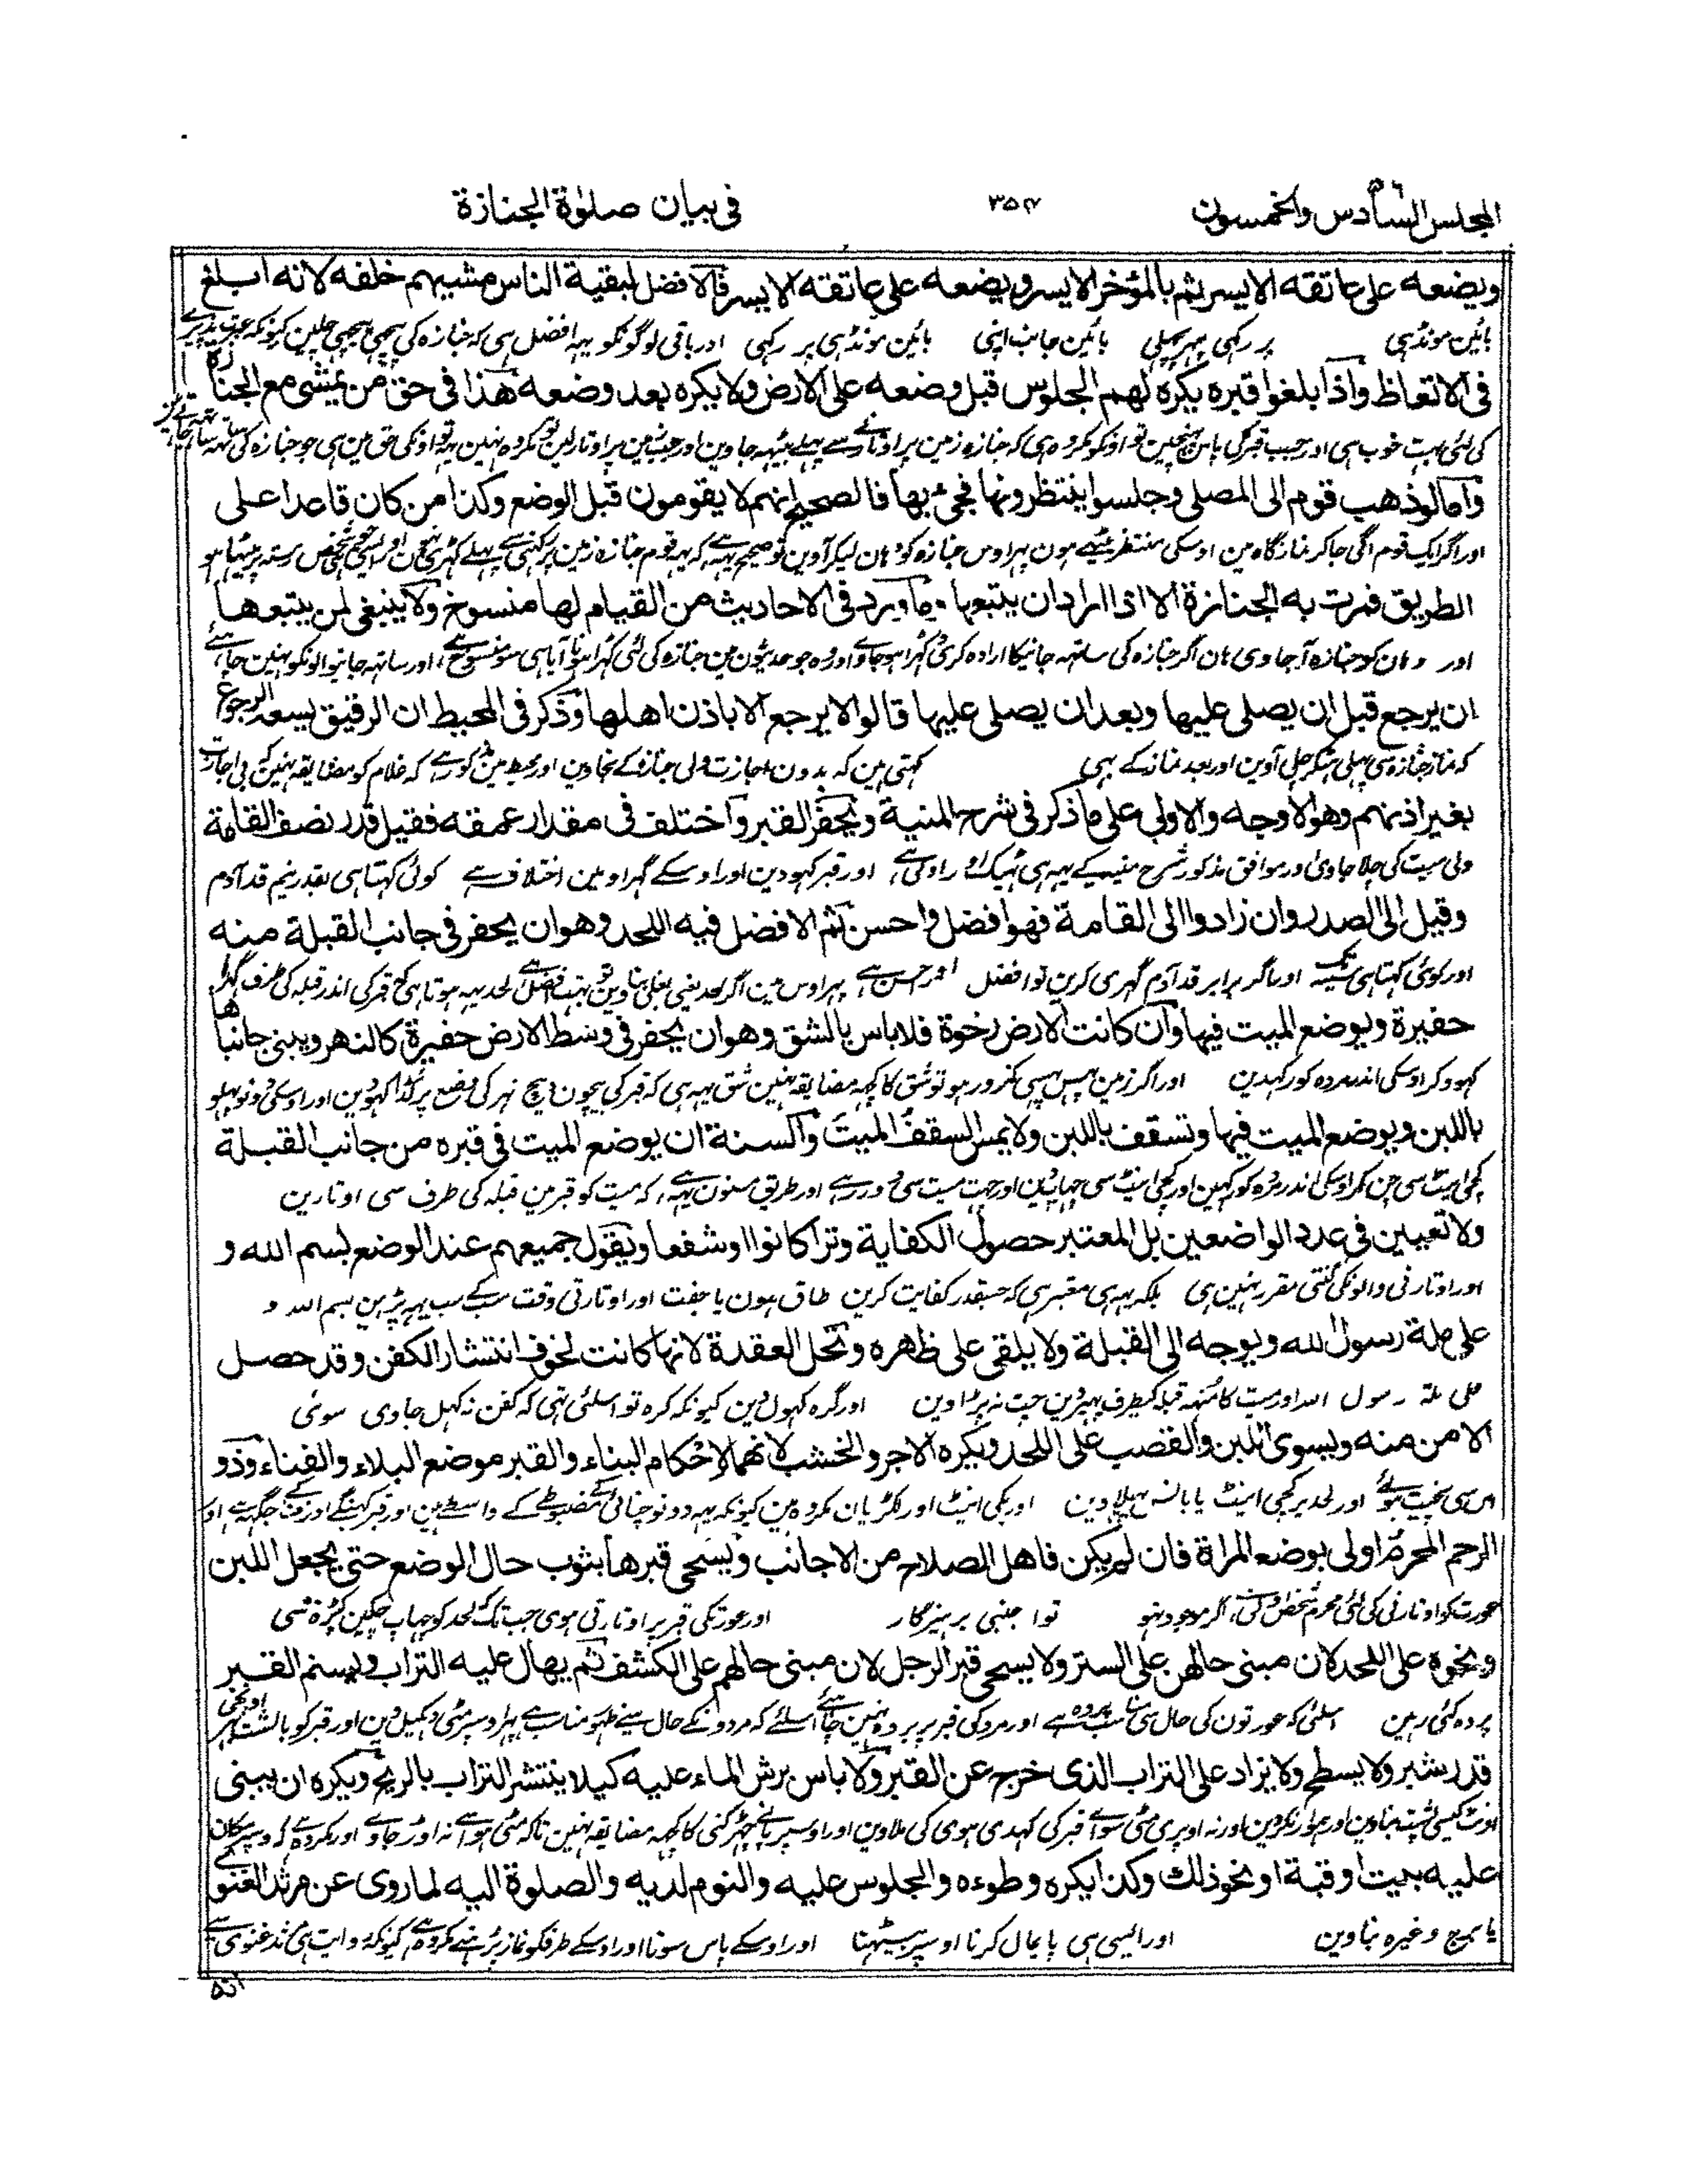 المجلس السادس والخمسون ٣٥٤ في بيان صلوة الجنازة
ويضعه على عاتقه الايسر ثم بالمؤخر الايسر ويضعه على عاتقه الايسر فالافضل لبقية الناس مشيهم خلفه لانه ابلغ
بائین مونڈہی پر رکہی پہر پچہلی بائین جانب اپنی بائین مونڈہی پر رکہی اور باقی لوگونکو یہہ افضل ہی کہ جنازہ کی پیچہی پیچہی چلین کیونکہ
في الاتعاظ واذا بلغوا قبره يكره لهم الجلوس قبل وضعه على الارض ولا يكره بعد وضعه هذا في حق من يمشى مع الجنازة
کی لئی بہت خوب ہی اور جب قبر کی پاس پہنچین تو اونکو مکروہ ہی کہ جنازہ زمین پر اوتارنے سے پہلے بیٹہہ جاوین اور جب زمین پر اوتارلین تو مکروہ نہین یہہ اونکی حق مین ہی جو جنازہ کی
واما لو ذهب قوم الى المصلى وجلسوا ينتظرونها فجیٔ بها فالصحيح انهم لا يقومون قبل الوضع وكذا من كان قاعدا على
اور اگر ایک قوم اگی جاکر نمازگاہ مین اوسکی منتظر بیٹہے ہون پہر اوس جنازہ کو وہان لیکر آوین تو صحیح یہہ ہے کہ یہہ قوم جنازہ زمین پر رکہنی سے پہلے کہڑی نہون اور ایسی ہی جو شخص رستہ پر بیٹہا ہو
الطريق فمرت به الجنازة الا اذا اراد ان يتبعها وما ورد في الاحاديث من القيام لها منسوخ ولا ينبغى لمن يتبعها
اور وہان کو جنازہ آجاوی ہان اگر جنازہ کی ساتہہ جانیکا ارادہ کری تو کہڑا ہو جاوے اور وہ جو حدیثون مین جنازہ کی لئی کہڑا ہونا آیا ہی سو منسوخ ہے اور ساتہہ جانیوالونکو نہین چاہئے
ان يرجع قبل ان يصلى عليها وبعد ان يصلى عليها قالوا لا يرجع الا باذن اهلها وذكر في المحيط ان الرفيق يسعه الرجوع
کہ نماز جنازہ سی پہلی ہٹکر چلی آوین اور بعد نماز کے بہی کہتی مین کہ بدون اجازت ولی جنازہ کے نجاوین اور محیط مین مذکور ہے کہ غلام کو مضایقہ نہین کہ بی اجازت
بغير اذنهم وهو الاوجه والاولى على ما ذكر في شرح المنية ويحفر القبر واختلف في مقدار عمقه فقيل قدر نصف القامة
ولی میت کی چلا جاوی اور موافق مذکور شرح منیہ کے یہہ ہی ٹہیک اور اولی ہے اور قبر کہودین اور اوسکے گہراو مین اختلاف ہے کوئی کہتا ہی بقدر نیم قد آدم
وقيل الى الصدر وان زادوا الى القامة فهو افضل واحسن ثم الافضل فيه اللحد وهو ان يحفر في جانب القبلة منه
اور کوئی کہتا ہی سینہ تک اور اگر برابر قد آدم گہری کرین تو افضل اور احسن ہے پہر اوس مین اگر لحد یعنی بغلی بناوین تو بہت افضل ہے لحد یہہ ہوتا ہی کہ قبر کی اندر قبلہ کی طرف گڑہا
حفيرة ويوضع الميت فيها وان كانت الارض رخوة فلا باس بالشق وهو ان يحفر في وسط الارض حفيرة كالنهر ويبنى جانباها
کہودکر اوسکی اندر مردہ کو رکہدین اور اگر زمین پہس پہسی کمزور ہو تو شق کا کچہہ مضایقہ نہین شق یہہ ہی کہ قبر کی بیچون بیچ نہر کی وضع پر گڑہا کہودین اور اوسکی دونو پہلو
باللبن ويوضع الميت فيها وتسقف باللبن ولا يمس السقف الميت والسنة ان يوضع الميت في قبره من جانب القبلة
کچی اینٹ سی چن کر اوسکی اندر مردہ کو رکہین اور کچی اینٹ سی چہاپدین اور چہت میت سی دور رہے اور طریق مسنون یہہ ہے کہ میت کو قبر مین قبلہ کی طرف سی اوتارین
ولا تعيين في عدد الواضعين بل المعتبر حصول الكفاية وترا كانوا او شفعا ويقول جميعهم عند الوضع بسم الله و
اور اوتارنی والونکی گنتی مقرر نہین ہی بلکہ یہہ ہی معتبر ہی کہ جسقدر کفایت کرین طاق ہون یا جفت اور اوتارتی وقت سبکے سب یہہ پڑہین بسم الله و
على ملة رسول الله ويوجه الى القبلة ولا يلقى على ظهره وتحل العقدة لانها كانت لخوف انتشار الكفن وقد حصل
علی ملۃ رسول الله اور میت کا منہہ قبلہ کیطرف پہیردین چت نہ پڑاوین اور گرہ کہول دین کیونکہ گرہ تو اسلئی تہی کہ کفن نہ کہل جاوی سوئی
الامن منه ويسوى اللبن والقصب على اللحد ويكره الاجر والخشب لانهما لاحكام البناء والقبر موضع البلاء والفناء وذو
اور لحد پر کچی اینٹ یا بانسہ پہیلا دین اور پکی اینٹ اور لکڑیان مکروہ مین کیونکہ یہہ دونو چنائی کے مضبوطے کے واسطے ہین اور قبر
الرحم المحرم اولى بوضع المراة فان لم يكن فاهل الصلاح من الاجانب ويسجى قبرها بثوب حال الوضع حتى يجعل اللبن
عورت کو اوتارنی کی لئی محرم شخص اولی ہے اگر موجود نہو تو اجنبی پرہیزگار اور عورتکی قبر پر اوتارتی ہوی جب تک لحد کو چہاپ چکین کپڑہ سی
ونحوه على اللحد لان مبنى حالهن على الستر ولا يسجى قبر الرجل لان مبنى حالهم على الكشف ثم يهال عليه التراب ويسنم القبر
پردہ کئی رہین اسلئی کہ عورتون کی حال سی مناسب پردہ ہے اور مرد کی قبر پر پردہ نہین چاہئے اسلئے کہ مردونکے حال
قدر شبر ولا يسطح ولا يزاد على التراب الذى خرج عن القبر ولا باس برش الماء عليه كيلا ينتشر التراب بالريح ويكره ان يبنى
اور نہ اوپری مٹی سوائے قبر کی کہدی ہوی کی ملاوین اور اوسپر پانے چہڑکنی کا کچہہ مضایقہ نہین تاکہ مٹی ہوا سے نہ اوڑ جاوے اور مکروہ ہے کہ اوسپر مکان
عليه بيت او قبة او نحو ذلك وكذا يكره وطوءه والجلوس عليه والنوم لديه والصلوة اليه لما روى عن مرثد الغنوى
یا برج وغیرہ بناوین اور ایسی ہی پایمال کرنا اوسپر بیٹہنا اور اوسکے پاس سونا اور اوسکے طرفکو نماز پڑہنے مکروہ ہے کیونکہ روایت ہی مرثد غنوی سے
انه